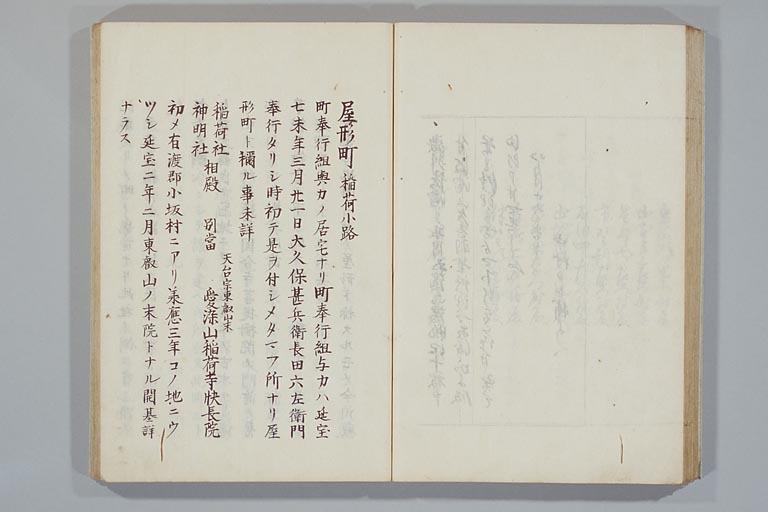 屋形町 稲荷小路
町奉行組與力ノ居宅ナリ町奉行組与力ハ延宝
七未年三月廿一日大久保甚兵衛長田六左衛門
奉行タリシ時初テ是ヲ付シメタマフ所ナリ屋
形町ト稱ル事未詳
稲荷社
神明社 相殿 別當 天台宗東叡山末 愛染山稲荷寺快長院
初メ有渡郡小坂村ニアリ承應三年コノ地ニウ
ツシ延宝二年二月東叡山ノ末院トナル開基詳
ナラス